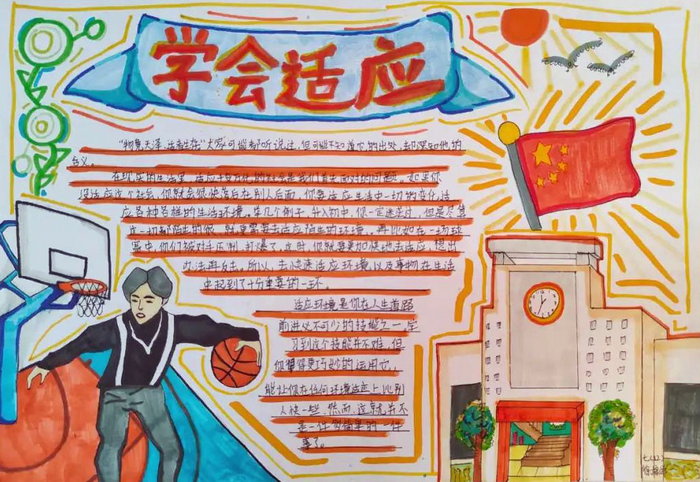 学会适应
"物竞天泽,适者生存"大家可能都听说过,但可能不知道它的出处,却深知他的
含义。
在现实的生活里,适应
没适应这个社会,你就会很快落后在别人后面,你要适应生活中一切的变化,适
应各种各样的生活环境。举几个例子,升入初中,你一定迷茫过,但是尽管
一切都
赛中,你们被对手压制,打爆了,这时,你就需要加倍地去适应,想出
办法再反击。所以,去追求适应环境,以及事物在生活
中起到了十分重要的一环。
适应环境是你在人生道路
前进必不可少的技能之一,学
习到这个技能并不难,但
你懂得更巧妙的运用它,
能让你在任何环境适应上比别
人快一些,然而,这就并不
是一件很简单的一件
事了。
七(12)